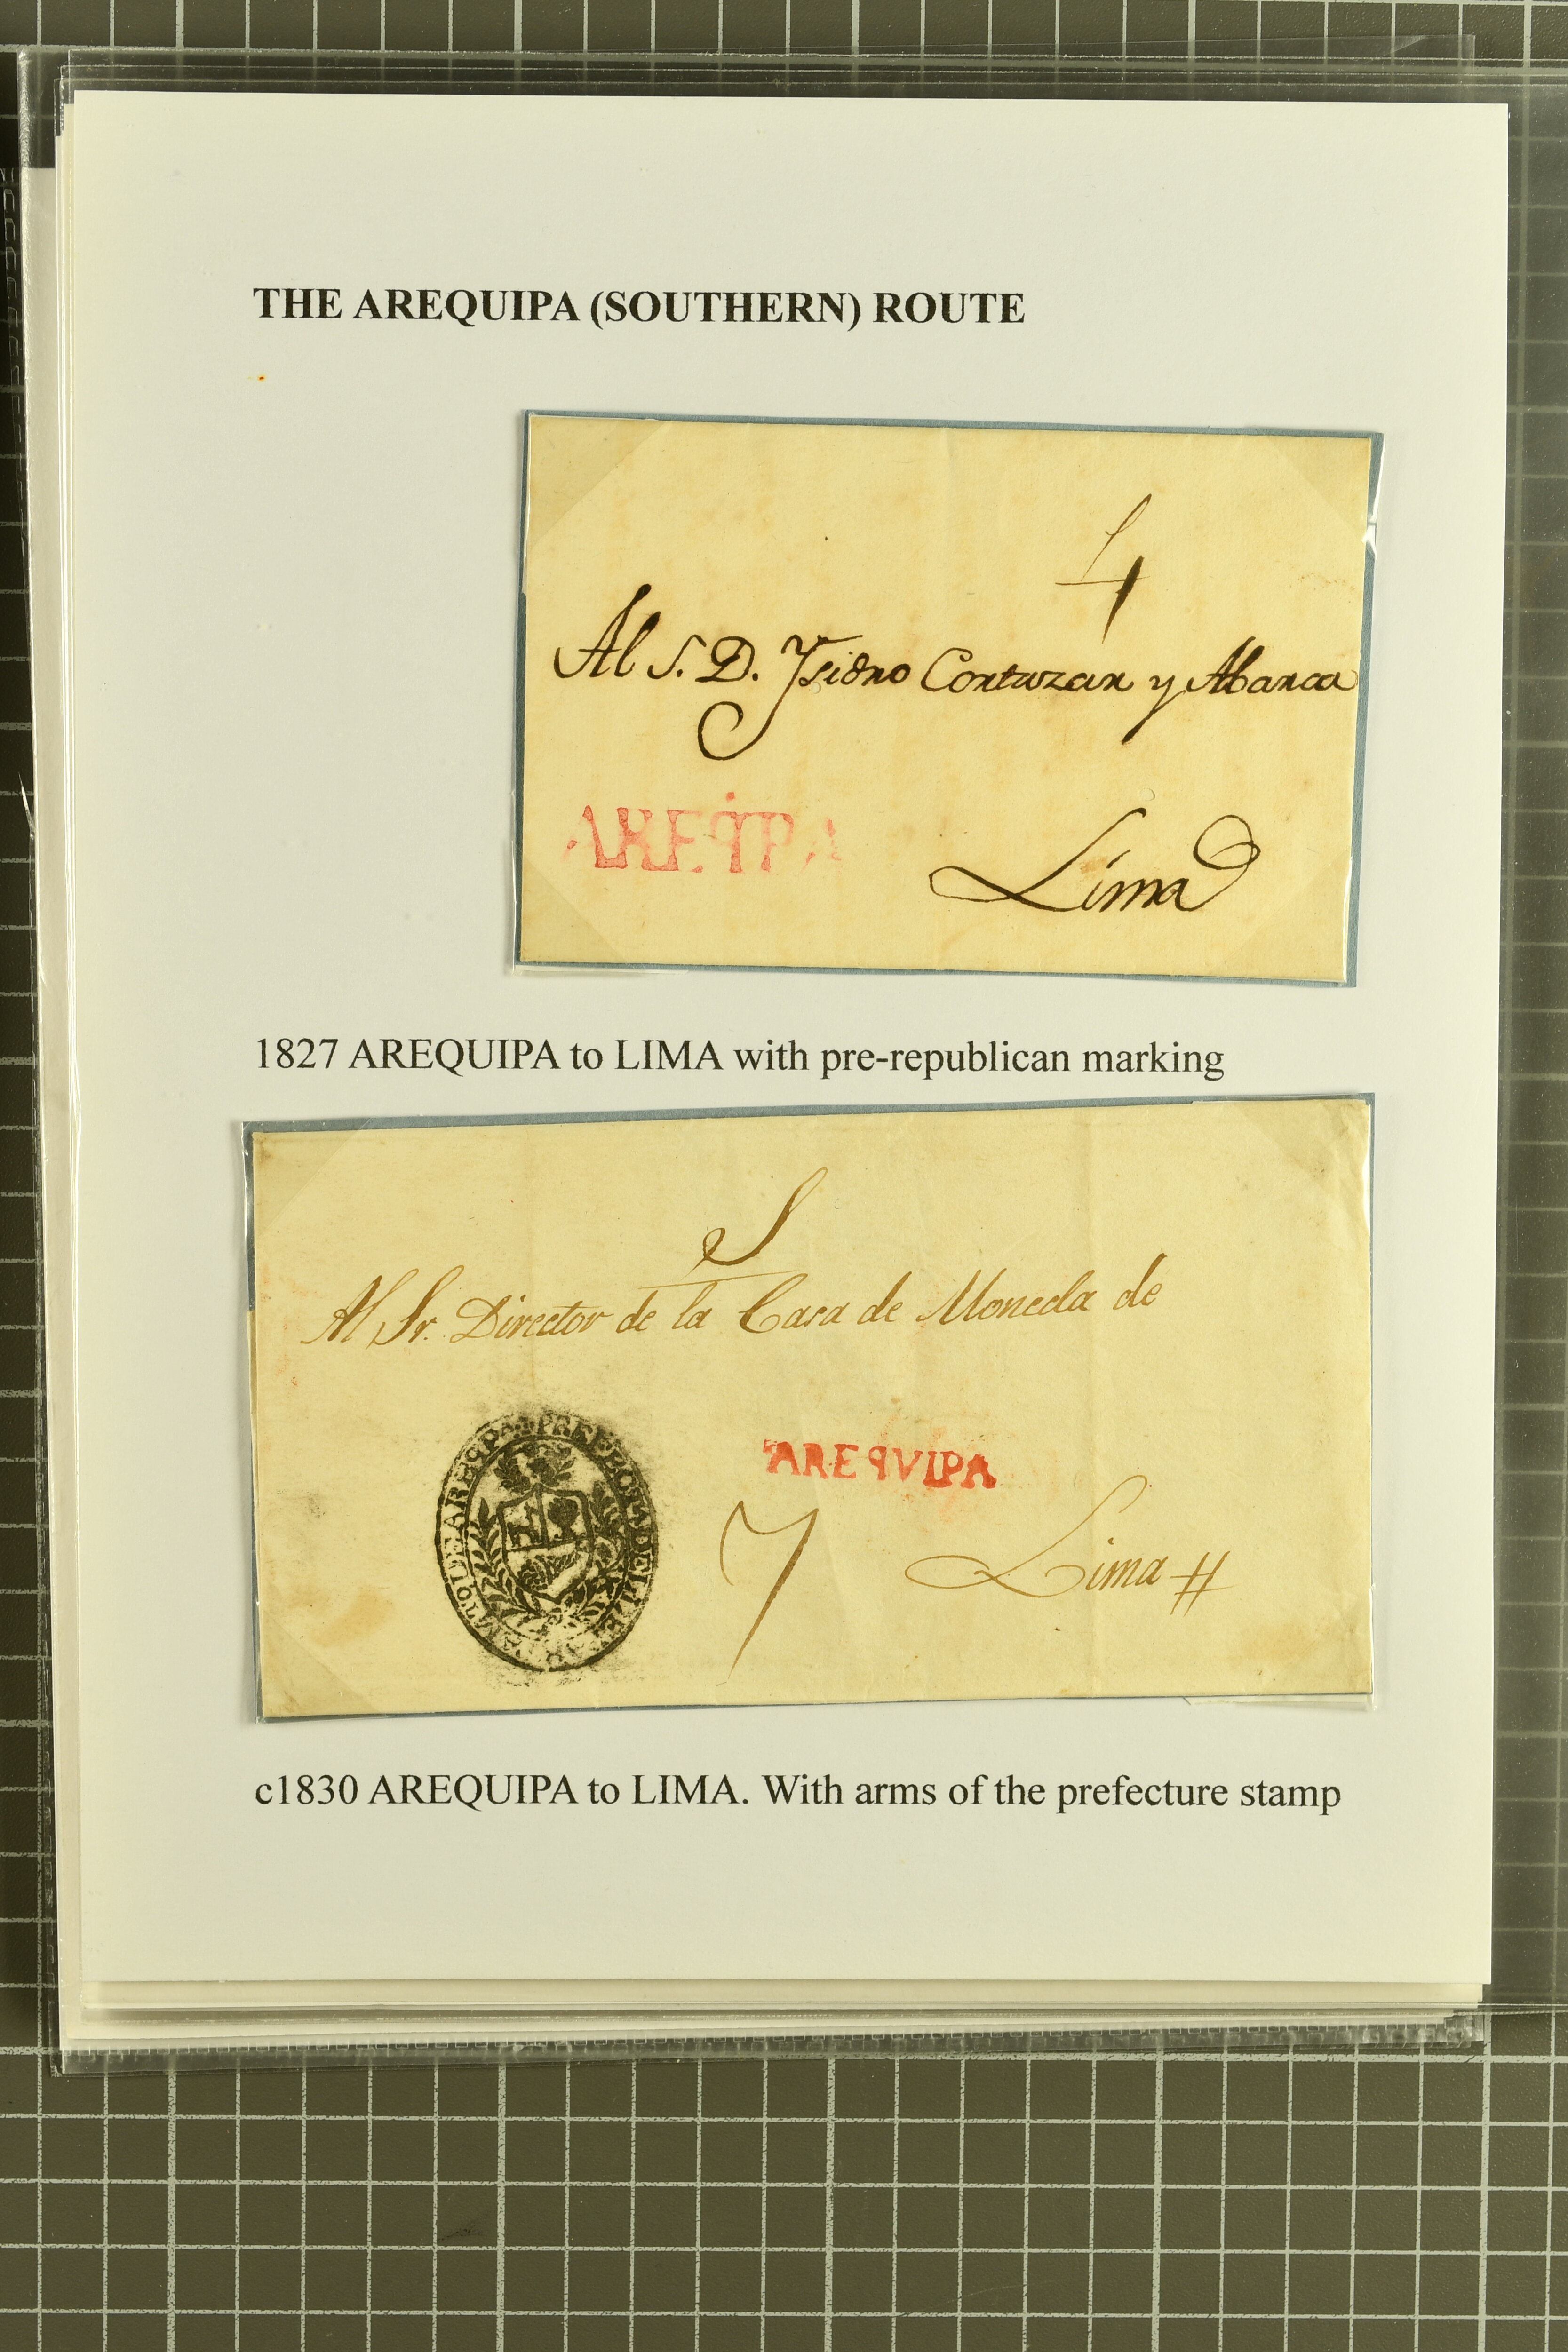 THE AREQUIPA (SOUTHERN) ROUTE
4
Al S. D. Ysidro Cortazar y Abarca
AREqPA
Lima
1827 AREQUIPA to LIMA with pre-republican marking
S
Al Sr. Director de la Casa de Moneda de
AREqVIPA
7
Lima
c1830 AREQUIPA to LIMA. With arms of the prefecture stamp